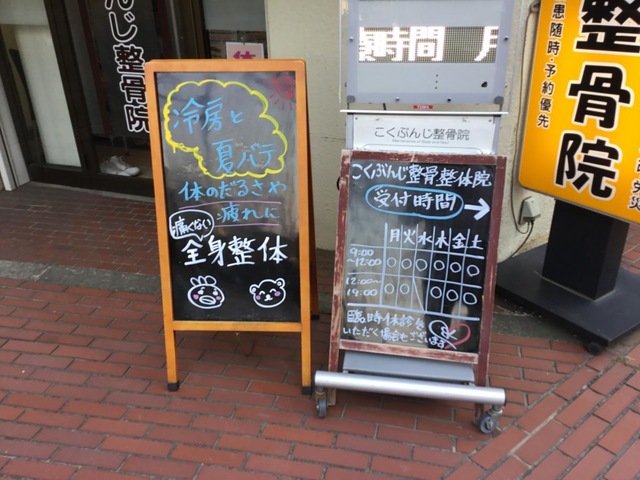 んじ整骨院
冷房と
夏バテ
体のだるさや
疲れに
痛くない
全身整体
時間 月
こくぶんじ整骨院
こくぶんじ整骨整体院
受付時間
月火水木金土
9:00
~12:00 ○○○○○○
12:00~
19:00 ○○ ○○
臨時休診を
いただく場合もございます
患随時・予約優先
整骨院